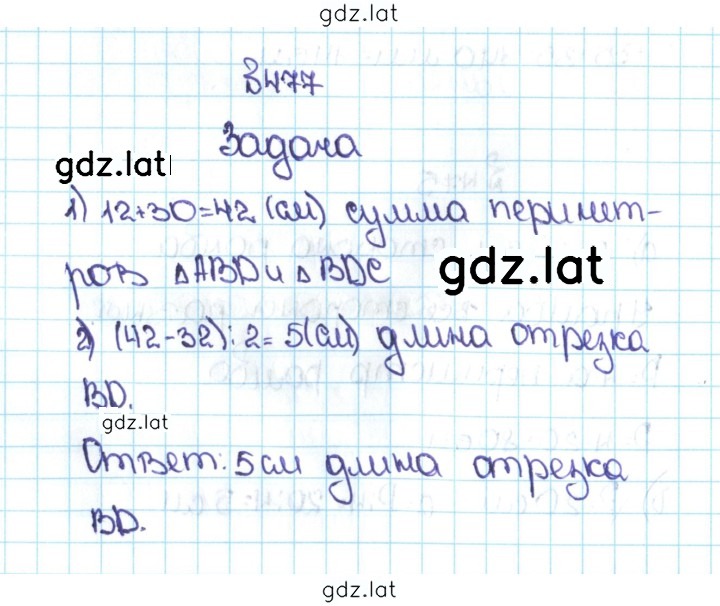 gdz.lat
З477
Задача
gdz.lat
1) 12+30=42 (см) сумма перимет-
ров △ABD и △BDC
gdz.lat
2) (42-32):2=5(см) длина отрезка
BD.
gdz.lat
Ответ: 5 см длина отрезка
BD.
gdz.lat